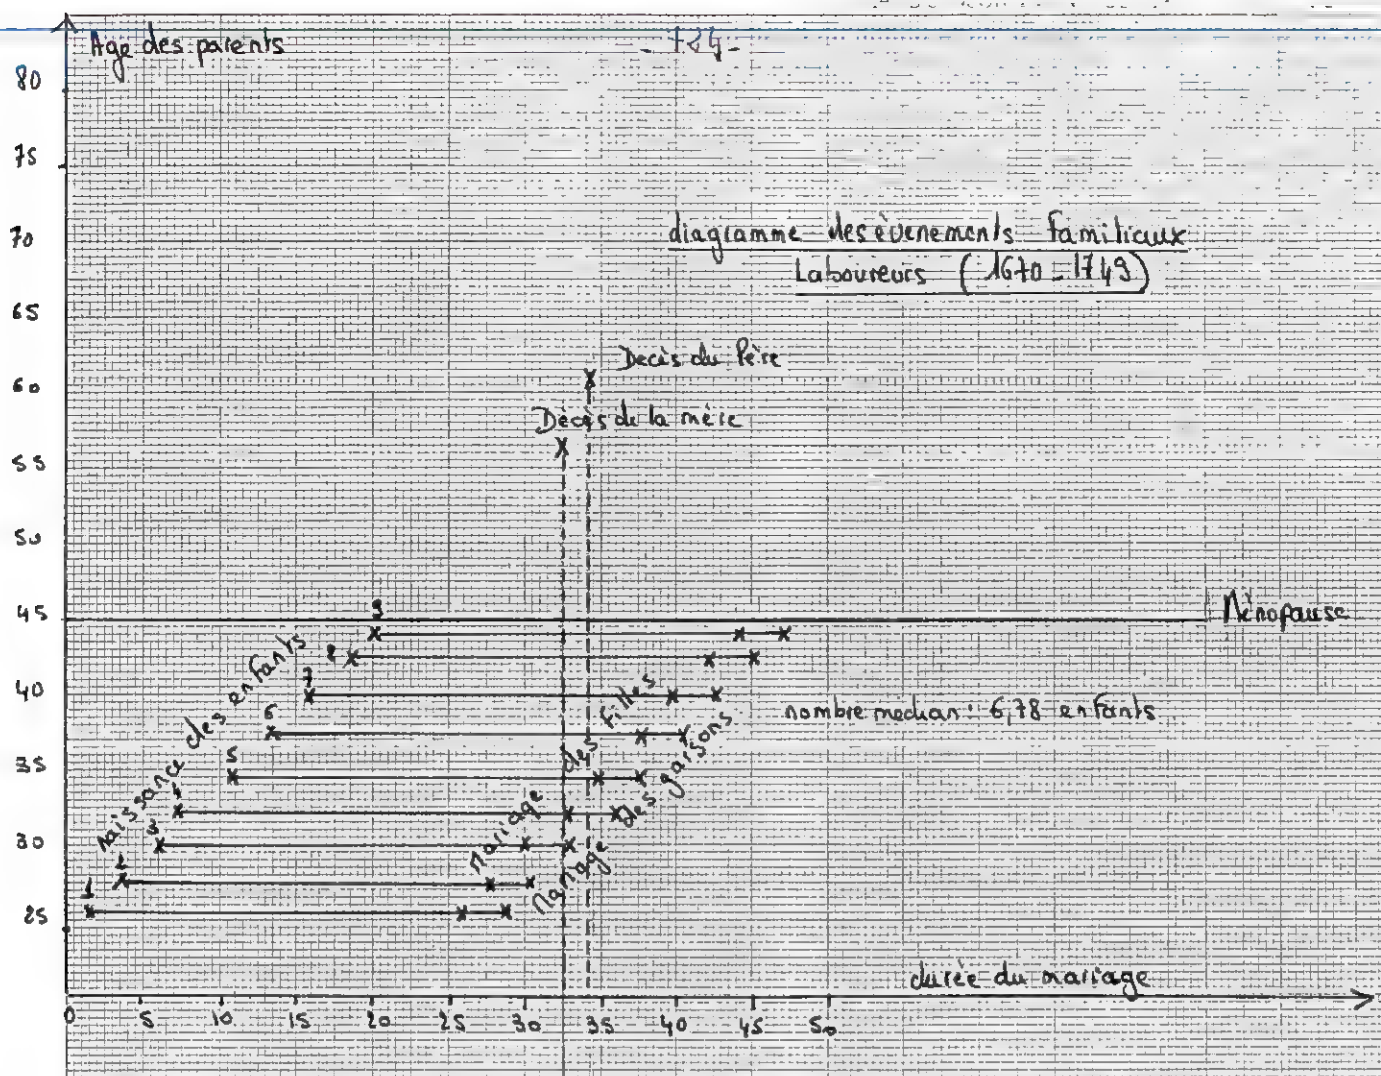 Age des parents
80
75
70
65
60
55
50
45
40
35
30
25
diagramme des évènements Familiaux
Laboureurs (1670-1749)
Decès du Père
Décès de la mère
Ménopause
nombre médian : 6,78 enfants
naissance des enfants
1
2
3
4
5
6
7
8
9
Mariage des filles
Mariage des garsons
durée du mariage
0 5 10 15 20 25 30 35 40 45 50